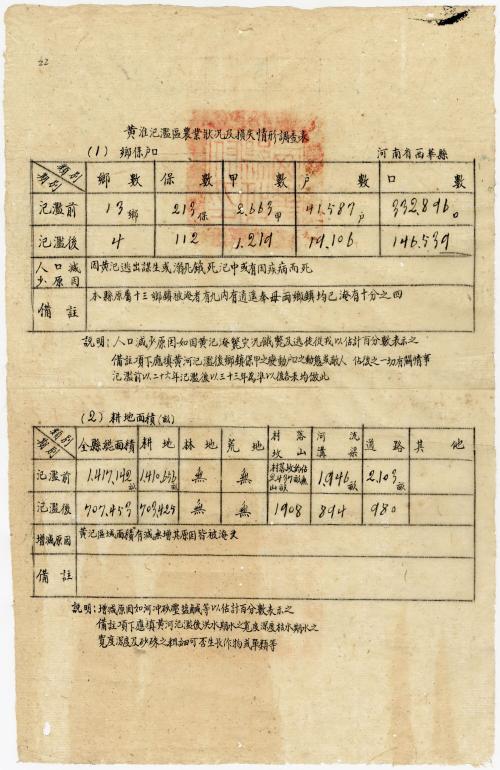 22
黄淮氾濫區農業狀况及損失情形調查表
(1) 鄉保户口 河南省西華縣
類別 類別 鄉數 保數 甲數 户數 口數
氾濫前 13鄉 213保 2.663甲 41.587户 332.896口
氾濫後 4 112 1.219 19.106 146.539
人口減少原因 因黄氾逃出謀生或溺死餓死氾中或有因疾病而死
備註 本縣原屬十三鄉鎮被淹者有九内有逍遥奉母兩鄉鎮均已淹有十分之四
説明：人口減少原因如因黄氾淹斃災况餓斃及逃徙從戎以估計百分數表示之
備註項下應填黄河氾濫後鄉鎮保甲之變動户口之動態或敵人佔後之一切有關情事
氾濫前以二十六年氾濫後以三十三年爲準以後各表均倣此
(2) 耕地面積(畝)
類別 類別 全縣總面積 耕地 林地 荒地 村落坎山 河流溝渠 道路 其他
氾濫前 1.417.142畝 1.410.656畝 無 無 1.946畝 2.103畝
氾濫後 707.453 703.425 無 無 1908 894 980
增減原因 黄氾區域面積有減無增其原因皆被淹失
備註
説明：增減原因如河冲砂壓盐鹹等以估計百分數表示之
備註項下應填黄河氾濫後洪水期水之寬度深度枯水期水之
寬度深度及砂珠之粗細可否生長作物或草類等